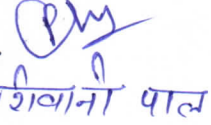 शिवानी पाल